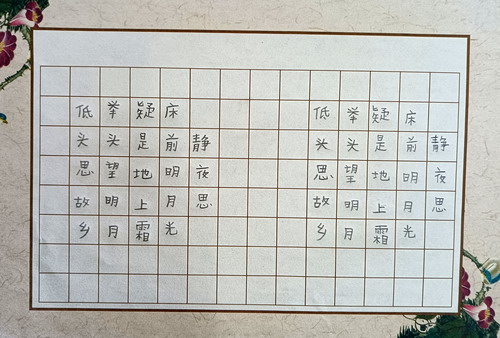 静夜思
床前明月光
疑是地上霜
举头望明月
低头思故乡
静夜思
床前明月光
疑是地上霜
举头望明月
低头思故乡